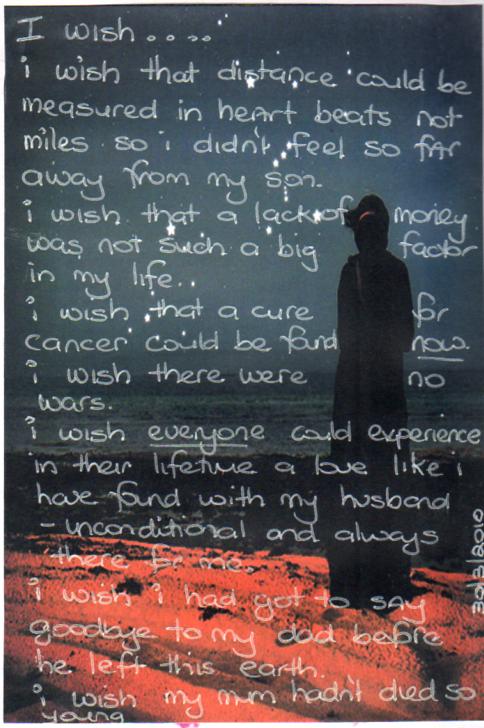 I wish.....
i wish that distance could be
measured in heart beats not
miles so i didn't feel so far
away from my son.
i wish that a lack of money
was not such a big factor
in my life..
i wish that a cure for
cancer could be found now.
i wish there were no
wars.
i wish everyone could experience
in their lifetime a love like i
have found with my husband
- unconditional and always
there for me.
i wish i had got to say
goodbye to my dad before
he left this earth.
i wish my mum hadn't died so
young
30/3/2010